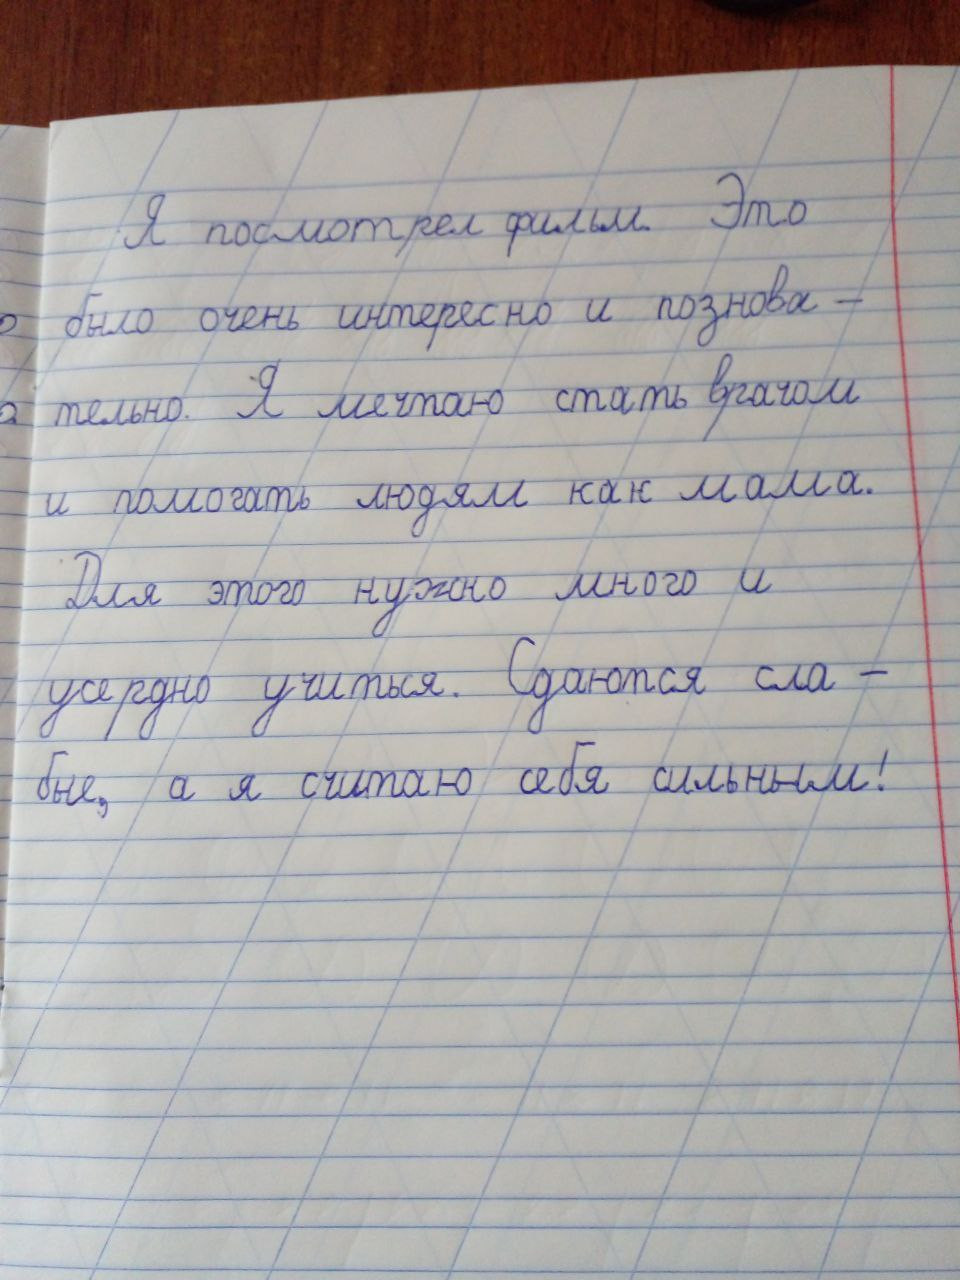 Я посмотрел фильм. Это
было очень интересно и познова-
тельно. Я мечтаю стать врачом
и помогать людям как мама.
Для этого нужно много и
усердно учиться. Сдаются сла-
бые, а я считаю себя сильным!